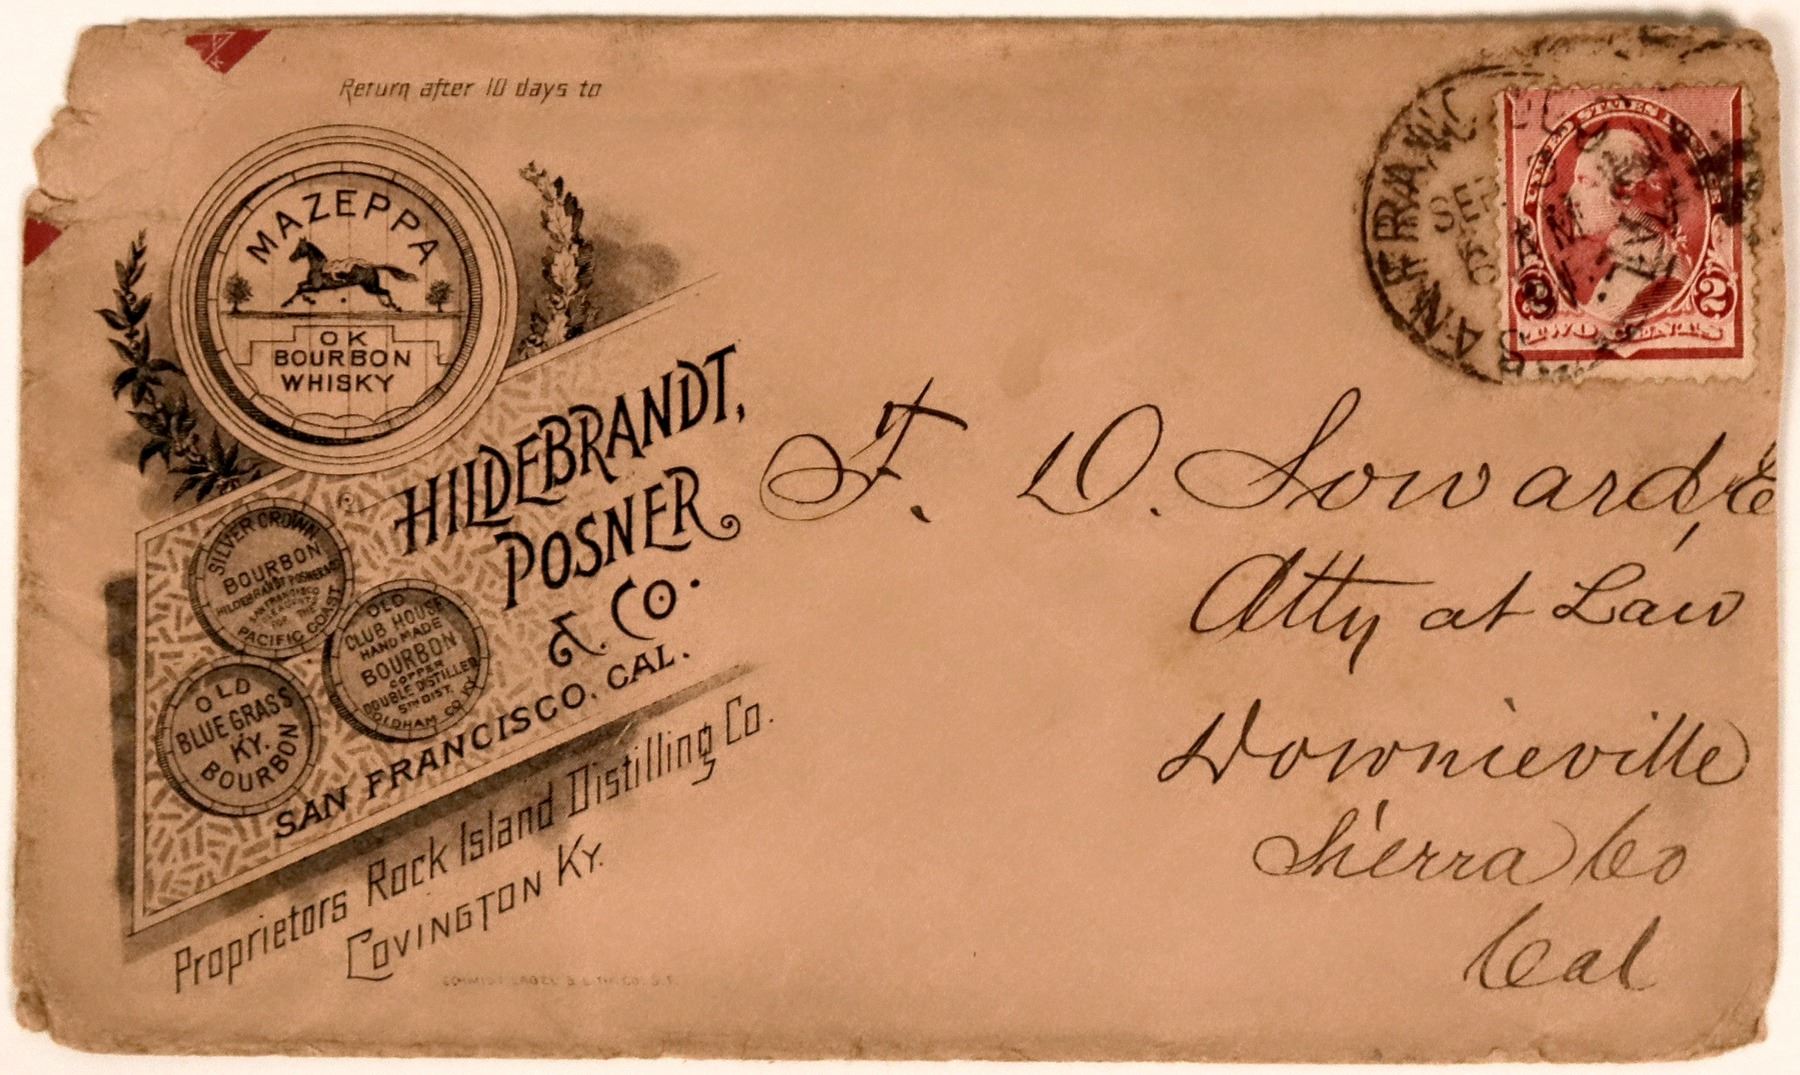 Return after 10 days to
MAZEPPA
OK
BOURBON
WHISKY
HILDEBRANDT,
POSNER
& CO.
SAN FRANCISCO. CAL.
SILVER CROWN
BOURBON
HILDEBRANDT POSNER & CO
SAN FRANCISCO
AGENTS
FOR THE
PACIFIC COAST
OLD
CLUB HOUSE
HAND MADE
BOURBON
COPPER
DOUBLE DISTILLED
5TH DIST.
OLDHAM CO. KY.
OLD
BLUE GRASS
KY.
BOURBON
Proprietors Rock Island Distilling Co.
COVINGTON KY.
SCHMIDT LABEL & LITH. CO. S.F.
SAN FRANCISCO
UNITED STATES POSTAGE
2 2
TWO CENTS
F. D. Soward, E
Atty at Law
Downieville
Sierra Co
Cal